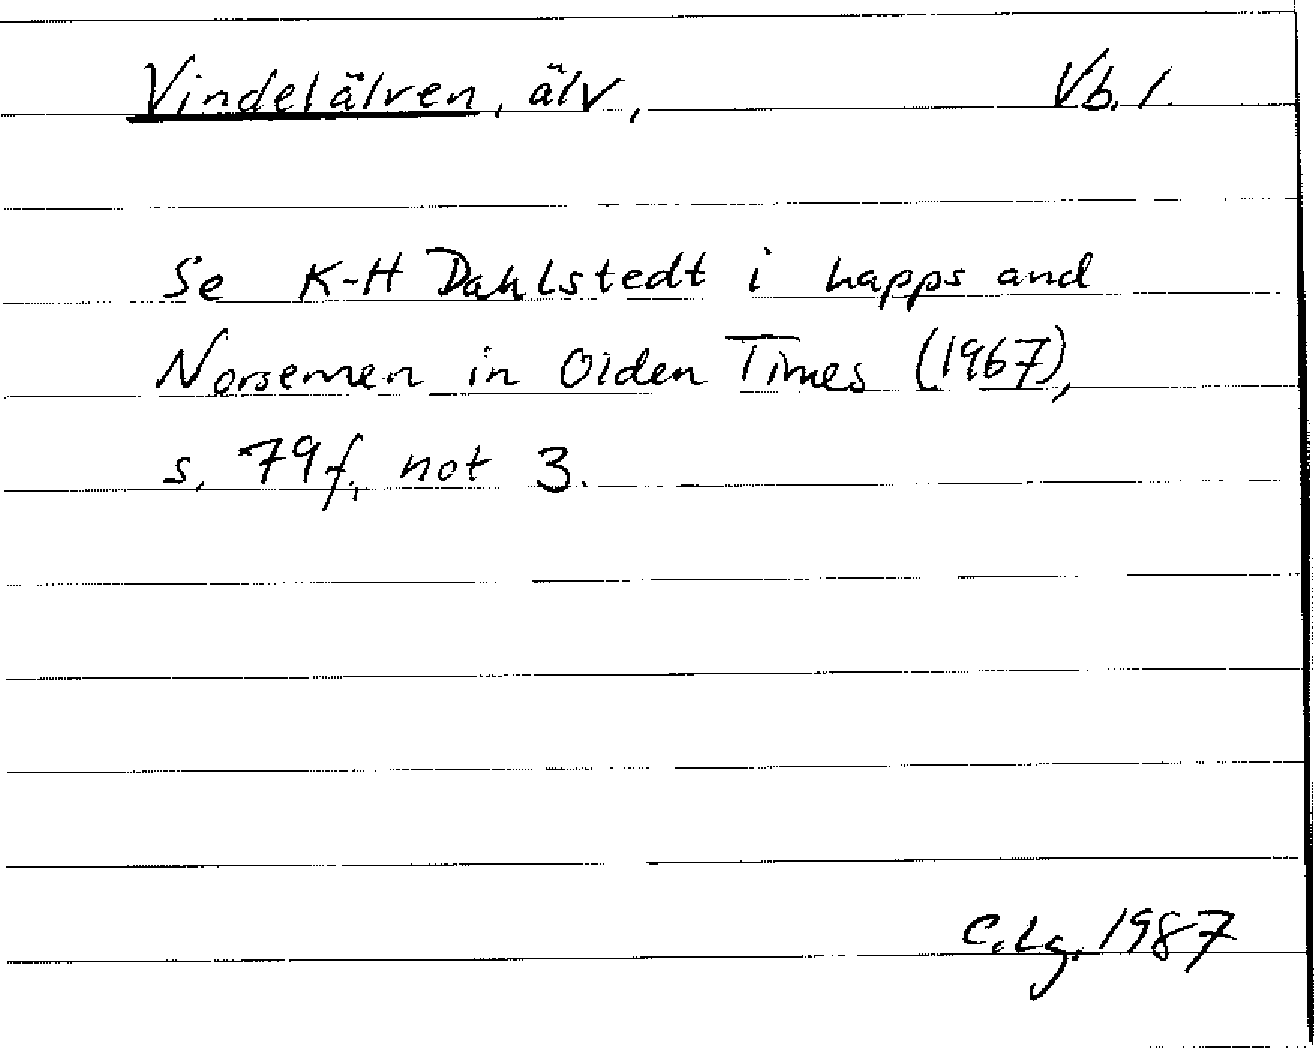 Vindelälven, älv, Vb. l.
Se K-H Dahlstedt i Lapps and
Norsemen in Olden Times (1967),
s. 79f, not 3.
C.Lg. 1987